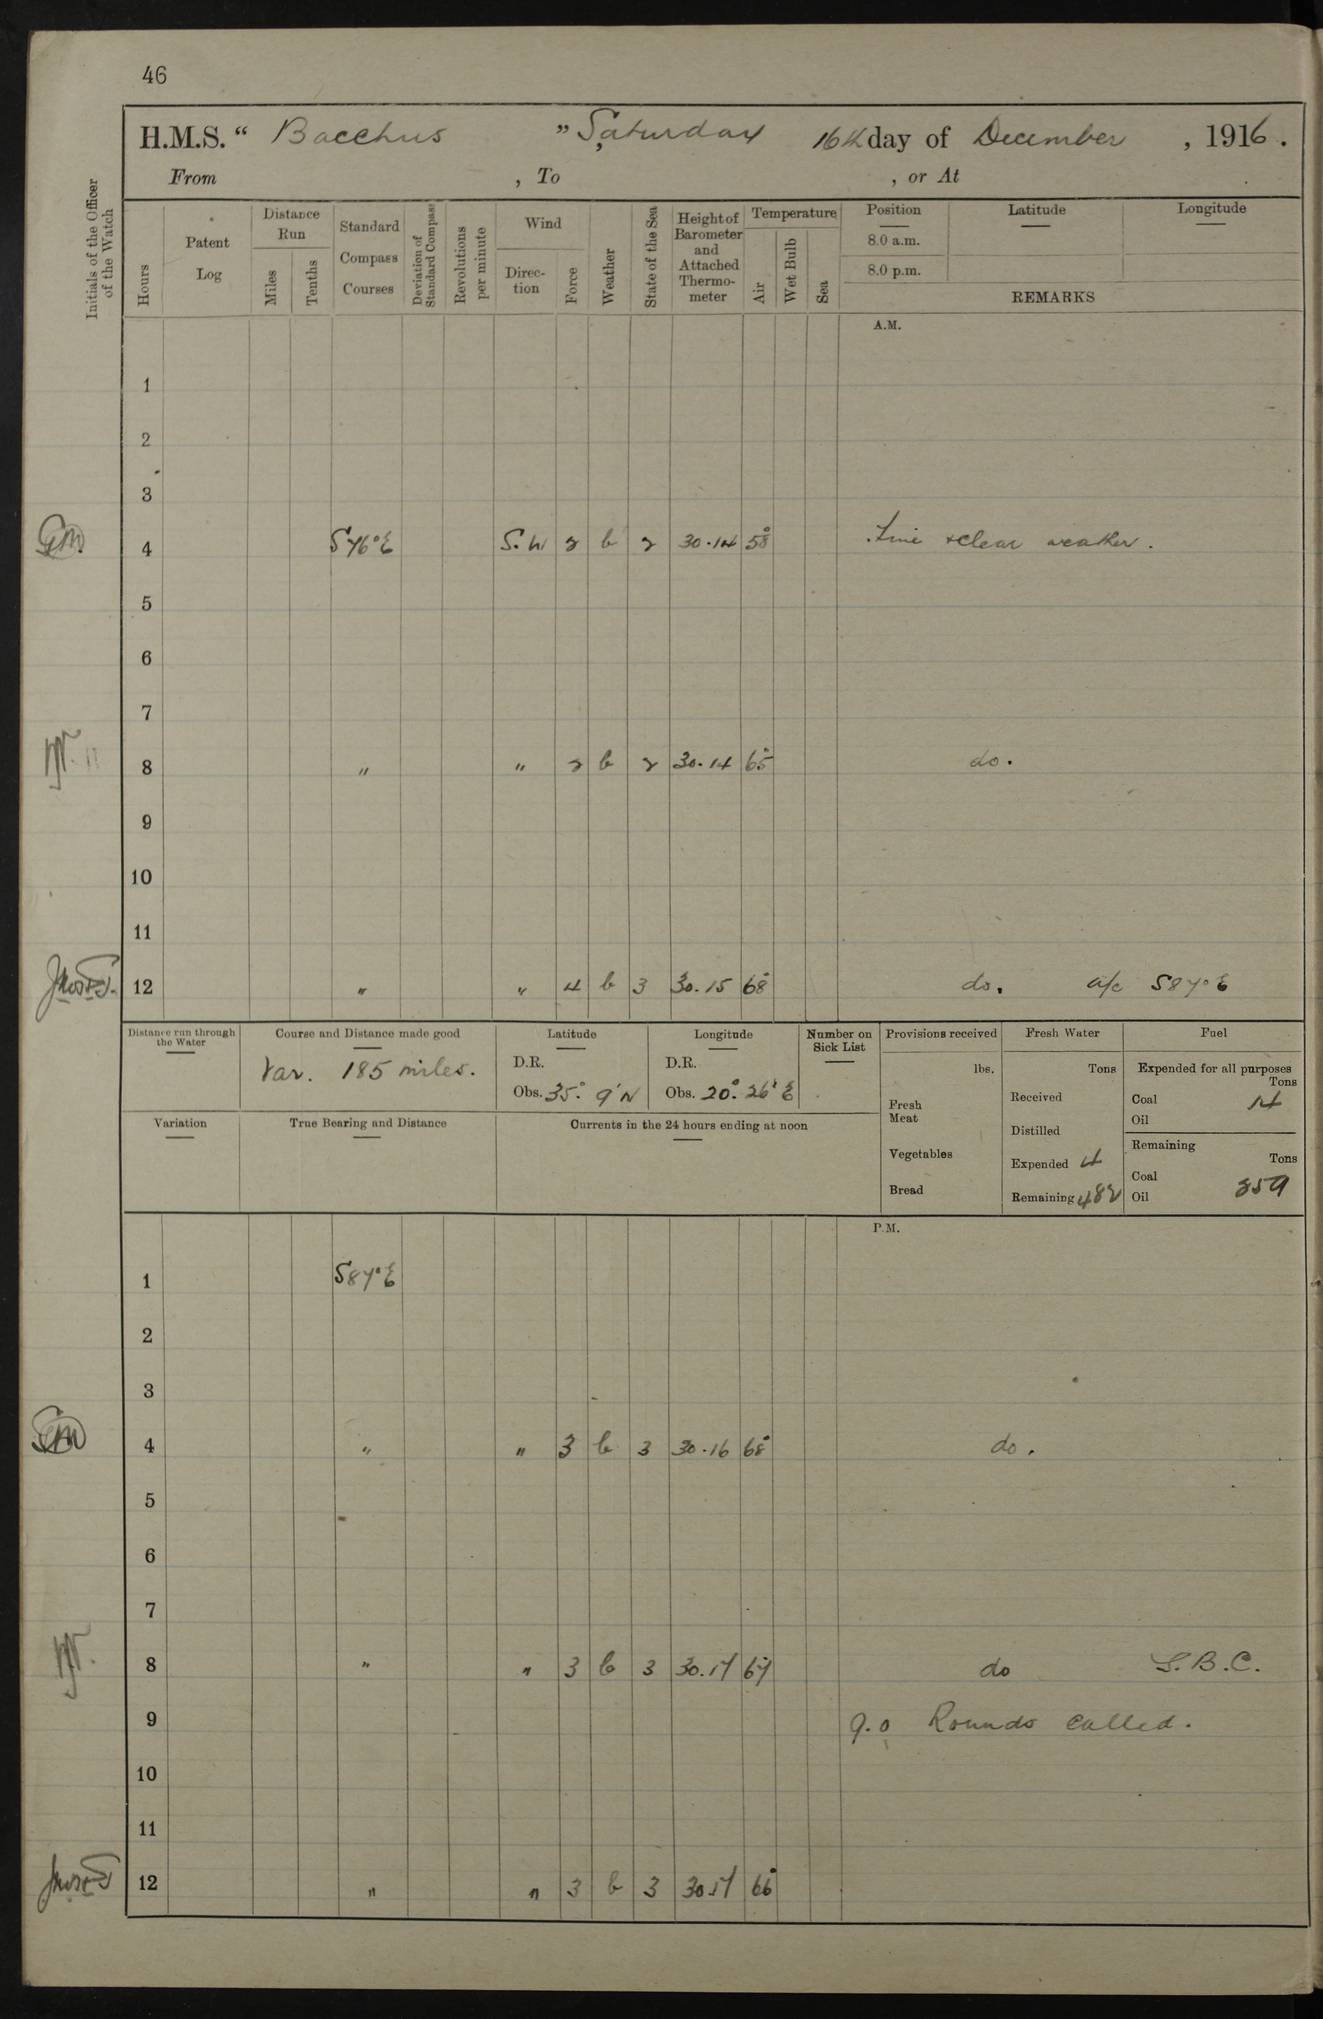 46
H.M.S. “ Bacchus ” Saturday 16th day of December , 1916.
From , To , or At
Initials of the Officer of the Watch
Hours
Patent Log
Distance Run
Miles
Tenths
Standard Compass Courses
Deviation of Standard Compass
Revolutions per minute
Wind
Direc-tion
Force
Weather
State of the Sea
Height of Barometer and Attached Thermo-meter
Temperature
Air
Wet Bulb
Sea
Position Latitude Longitude
8.0 a.m.
8.0 p.m.
REMARKS
A.M.
1
2
3
4 S 76° E S.W 2 b 2 30.14 58° Fine & clear weather.
5
6
7
8 " " 2 b 2 30.14 65° do.
9
10
11
12 " " 4 b 3 30.15 68° do. a/c S 87° E
Distance run through the Water
Course and Distance made good
Var. 185 miles.
Latitude
D.R.
Obs. 35° 9' N
Longitude
D.R.
Obs. 20° 26' E
Number on Sick List
Provisions received
lbs.
Fresh Meat
Vegetables
Bread
Fresh Water
Tons
Received
Distilled
Expended 4
Remaining 482
Fuel
Expended for all purposes
Tons
Coal 14
Oil
Remaining
Tons
Coal 859
Oil
Variation
True Bearing and Distance
Currents in the 24 hours ending at noon
P.M.
1 S 87° E
2
3
4 " " 3 b 3 30.16 68° do.
5
6
7
8 " " 3 b 3 30.17 67 do S.B.C.
9 9.0 Rounds called.
10
11
12 " " 3 b 3 30.17 66°